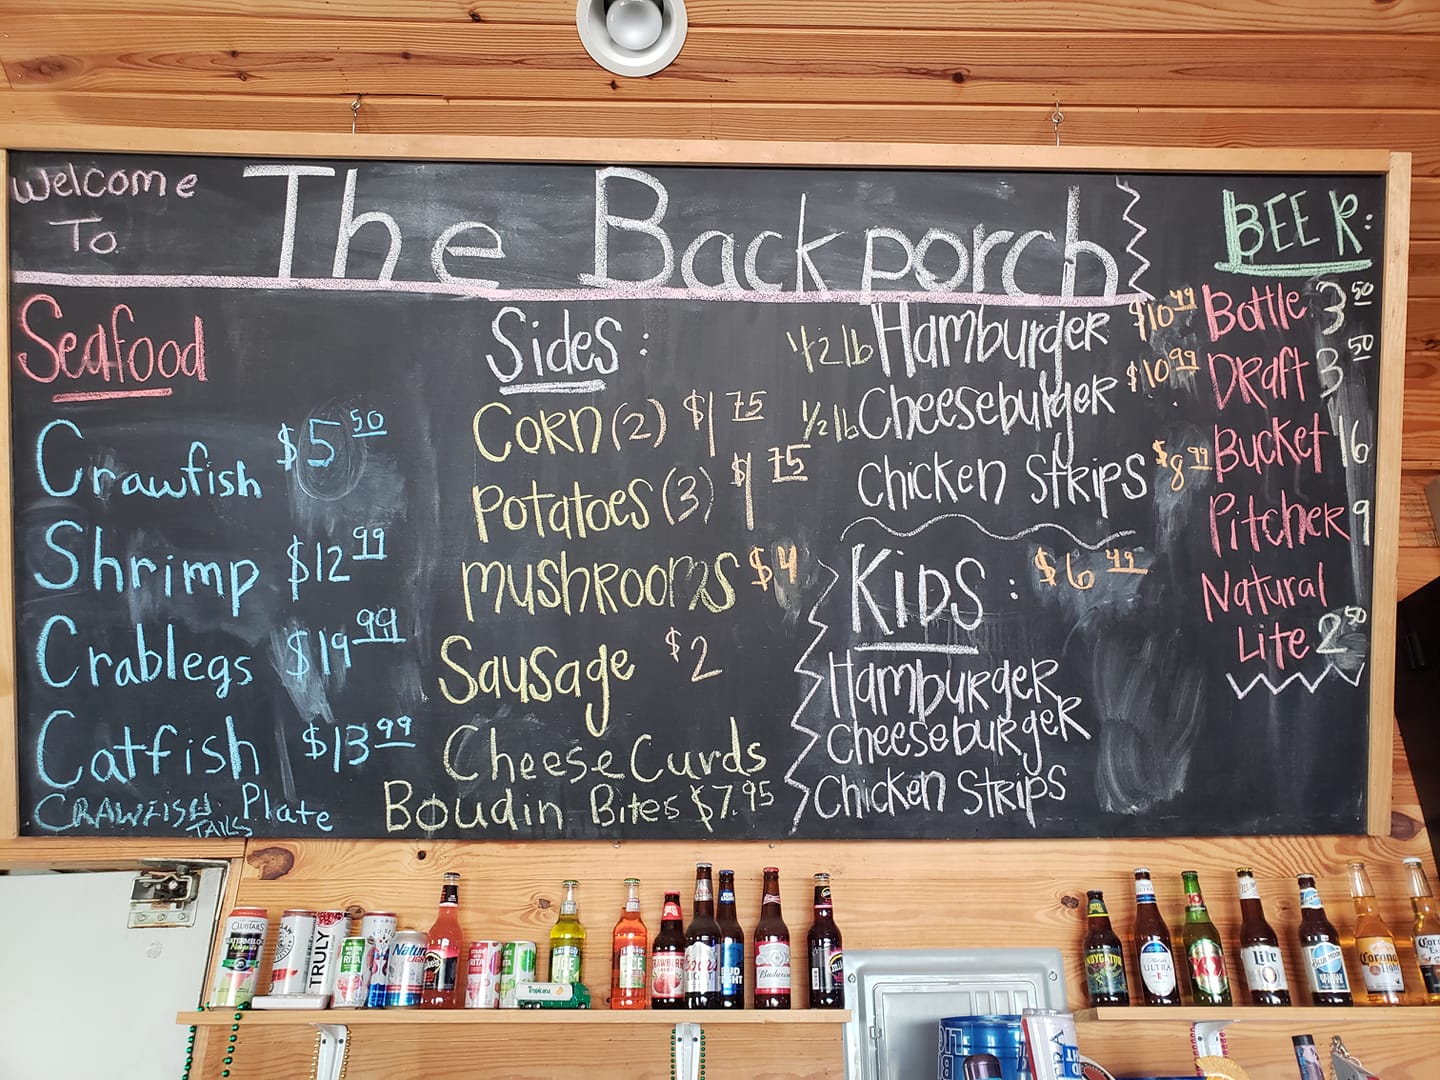 Welcome
To
The Backporch
Seafood
Crawfish $5 50
Shrimp $12 99
Crablegs $19 99
Catfish $13 99
CRAWFISH TAILS Plate
Sides:
CORN (2) $1 75
POTATOES (3) $1 75
MUSHROOMS $4
SAUSAGE $2
Cheese Curds
Boudin Bites $7.95
1/2 lb HAMBURGER $10 49
1/2 lb Cheeseburger $10 99
Chicken Strips $8 99
KIDS: $6 49
HAMBURGER
CheeseburgeR
Chicken Strips
BEER:
Bottle 3 50
DRaft 3 50
Bucket 16
Pitcher 9
Natural
Lite 2 50
CLUBTAILS
TRULY
RITA
Natural
LIGHT
RITA
Tropicana
ICE
ICE
Coors
LIGHT
BUD
LIGHT
Budweiser
ULTRA
XX
Lite
BLUE MOON
Corona
Light
Corona